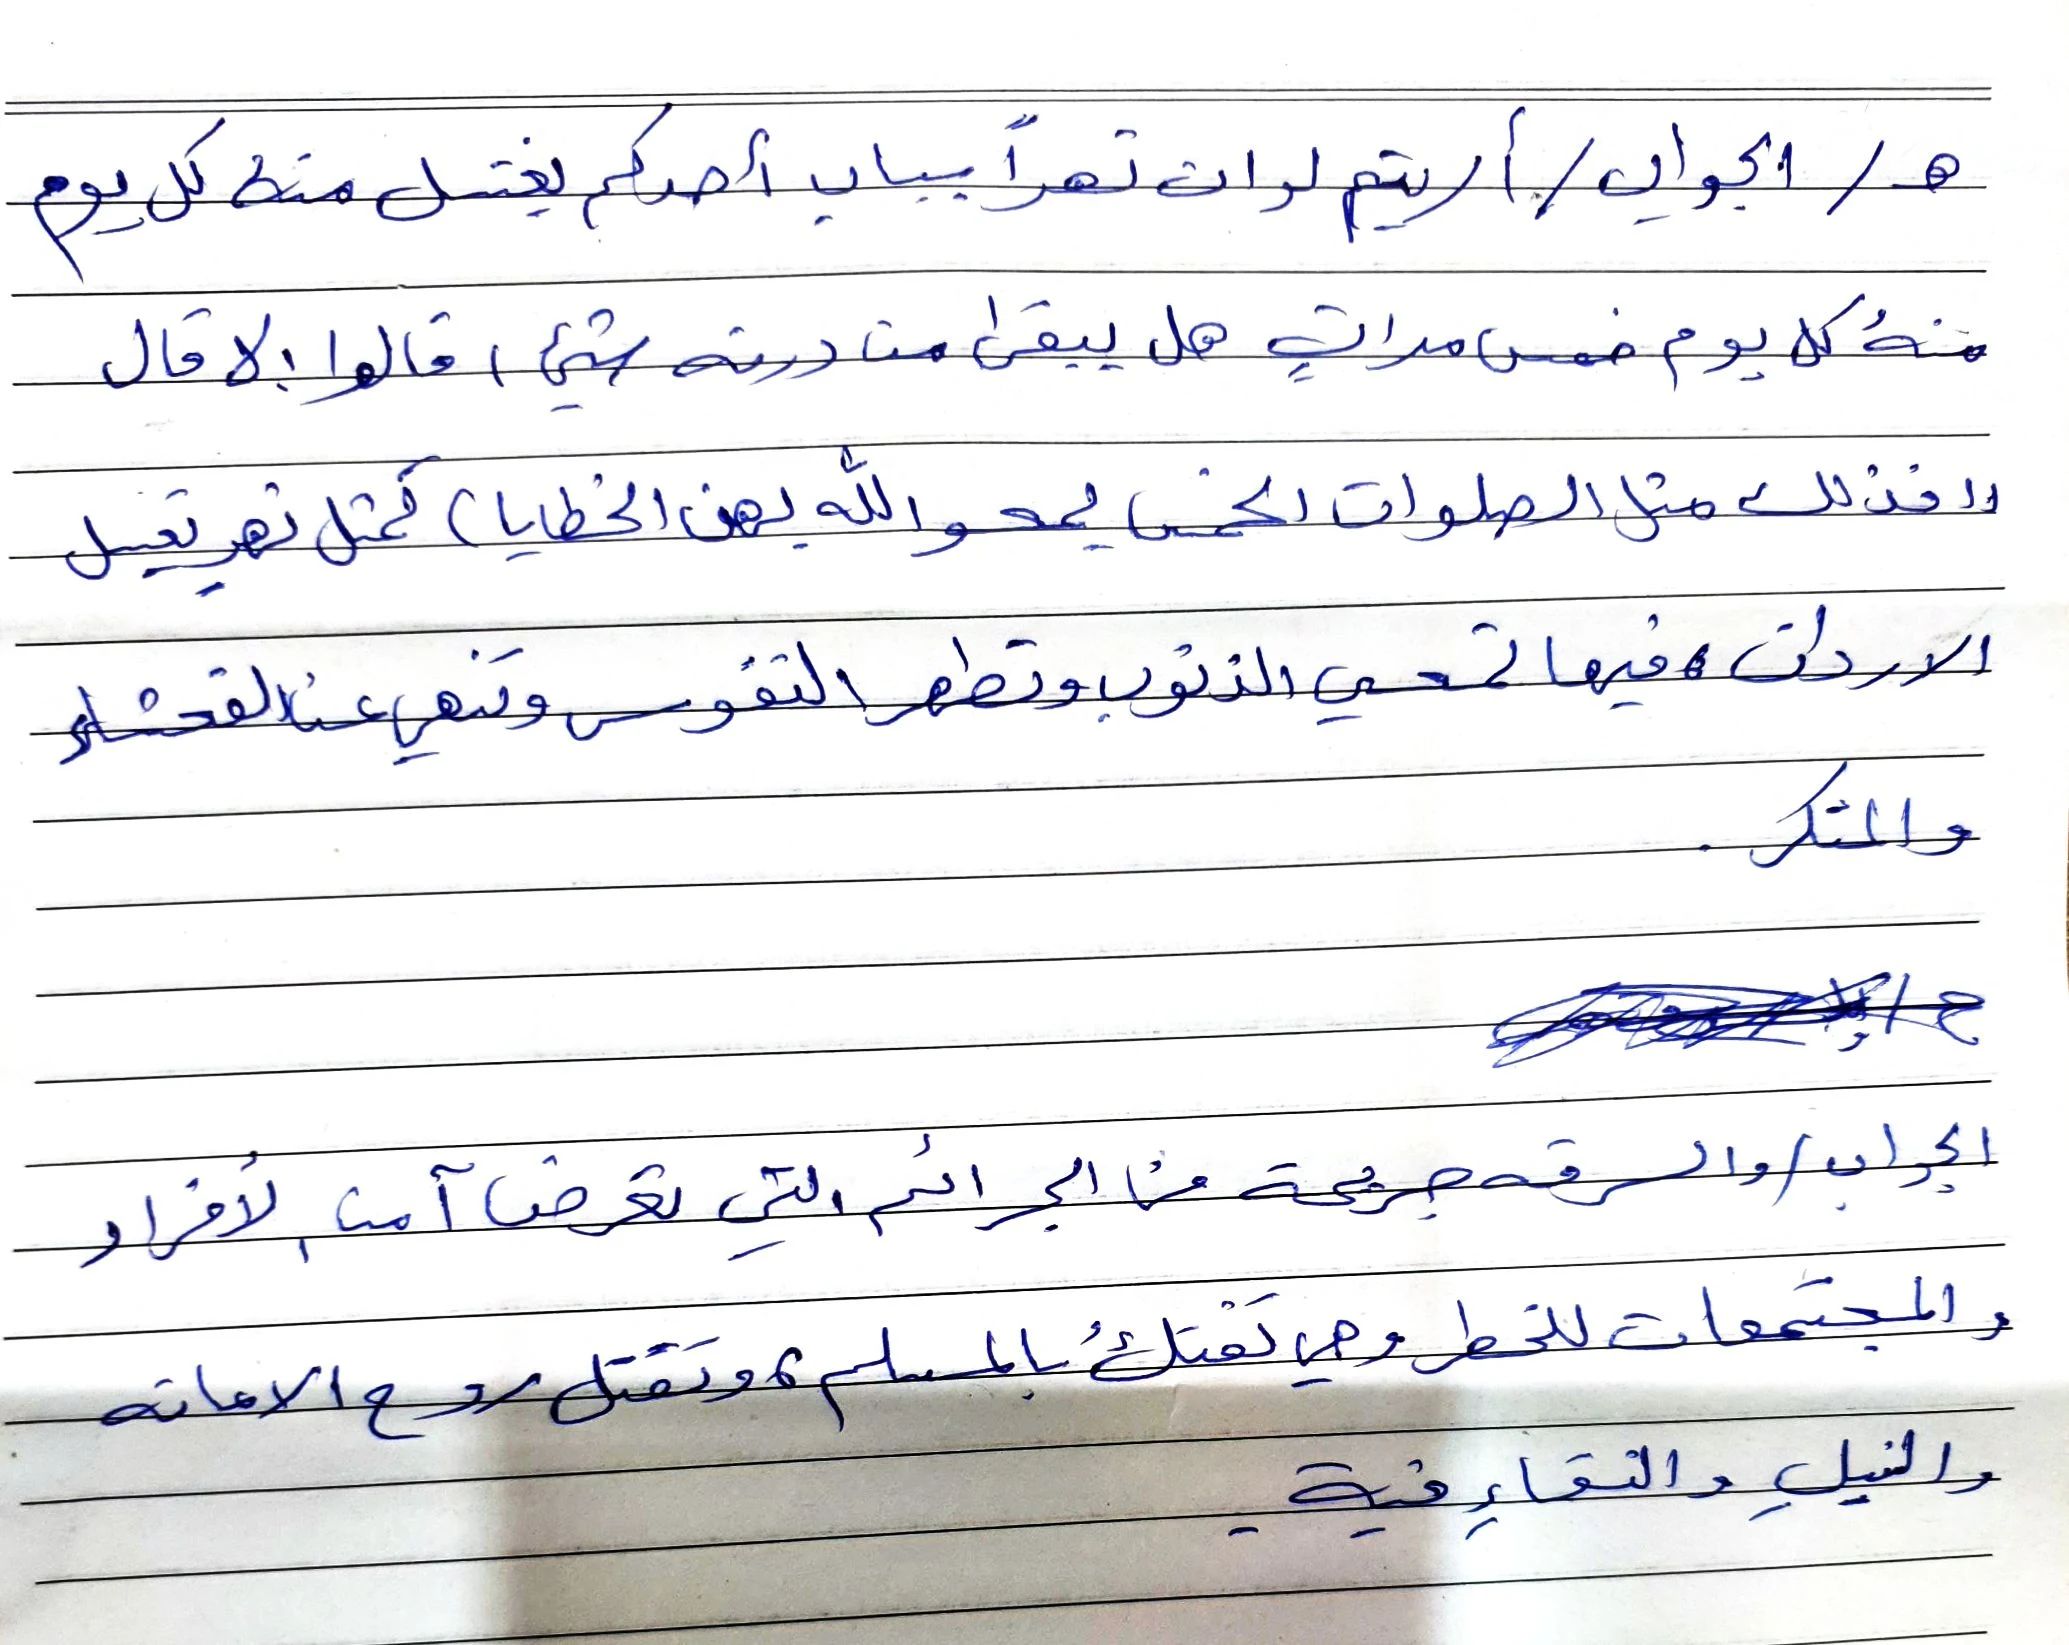 هـ / الجواب / أريتم لو ان نهراً بباب أحدكم يغتسل منه كل يوم
منهُ كل يوم خمس مراتٍ هل يبقىٰ من درنه شيء ، قالوا : لا قال
فذلك مثل الصلوات الخمس يمحو اللّٰه بهن الخطايا ) كمثل نهر تغسل
الاردان ، فيها تمحي الذنوب وتطهر النفوس وتنهي عن الفحشاء
والمنكر .
ح /
الجواب / والسرقه جريمة من الجرائم التي تعرض آمن الأفراد
والمجتمعات للخطر وهي تفتكُ بالمسلم ، وتقتل روح الامانه
والنبلِ والنقاءِ فية .